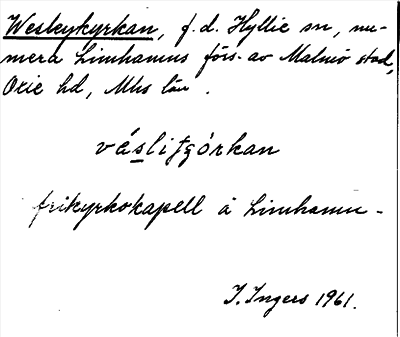 Wesleykyrkan, f.d. Hyllie sn, nu-
mera Limhamns förs. av Malmö stad,
Oxie hd, Mhs län.
váslitʒórkan
frikyrkokapell å Limhamn.
I. Ingers 1961.